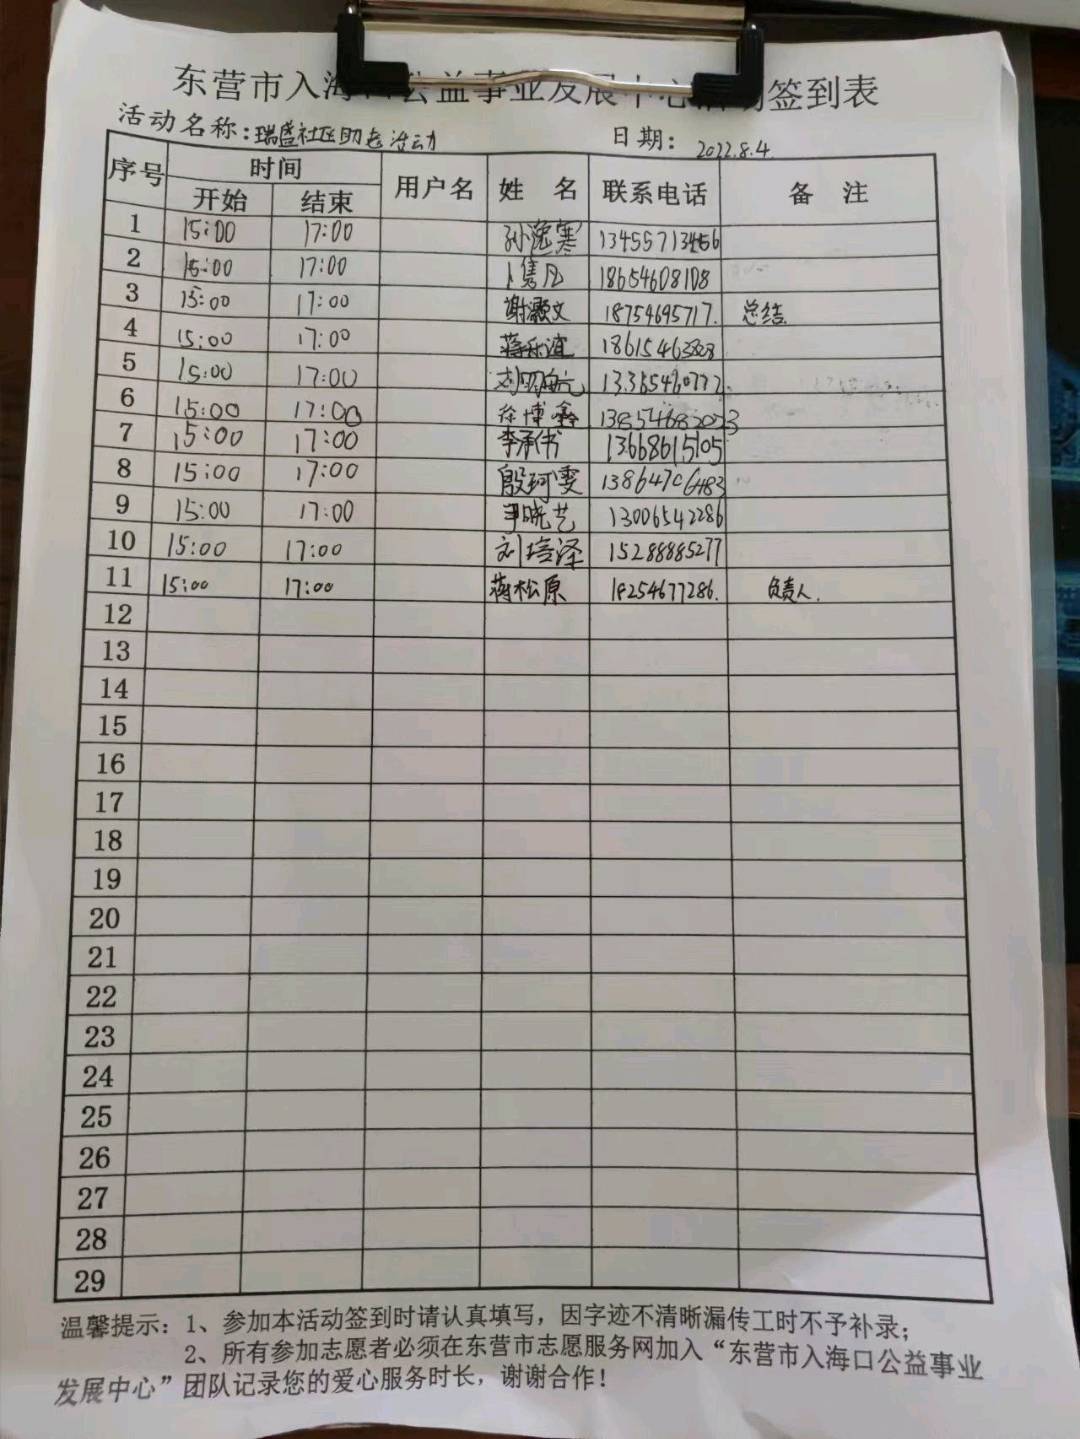 东营市入海口公益事业发展中心活动签到表
活动名称：瑞盛社区助老活动 日期：2022.8.4
序号 时间 用户名 姓名 联系电话 备注
开始 结束
1 15:00 17:00 孙逸寒 13455713456
2 15:00 17:00 卜隽凡 18654608108
3 15:00 17:00 谢灏文 18754695717. 总结
4 15:00 17:00 蒋乐谊
5 15:00 17:00
6 15:00 17:00 徐博鑫
7 15:00 17:00 李承书 13668615105
8 15:00 17:00 殷珂雯 13864706483
9 15:00 17:00 尹晓艺 13006542286
10 15:00 17:00 刘培泽 15288885277
11 15:00 17:00 蒋松原 18254677286. 负责人.
12
13
14
15
16
17
18
19
20
21
22
23
24
25
26
27
28
29
温馨提示：1、参加本活动签到时请认真填写，因字迹不清晰漏传工时不予补录；
2、所有参加志愿者必须在东营市志愿服务网加入“东营市入海口公益事业
发展中心”团队记录您的爱心服务时长，谢谢合作！